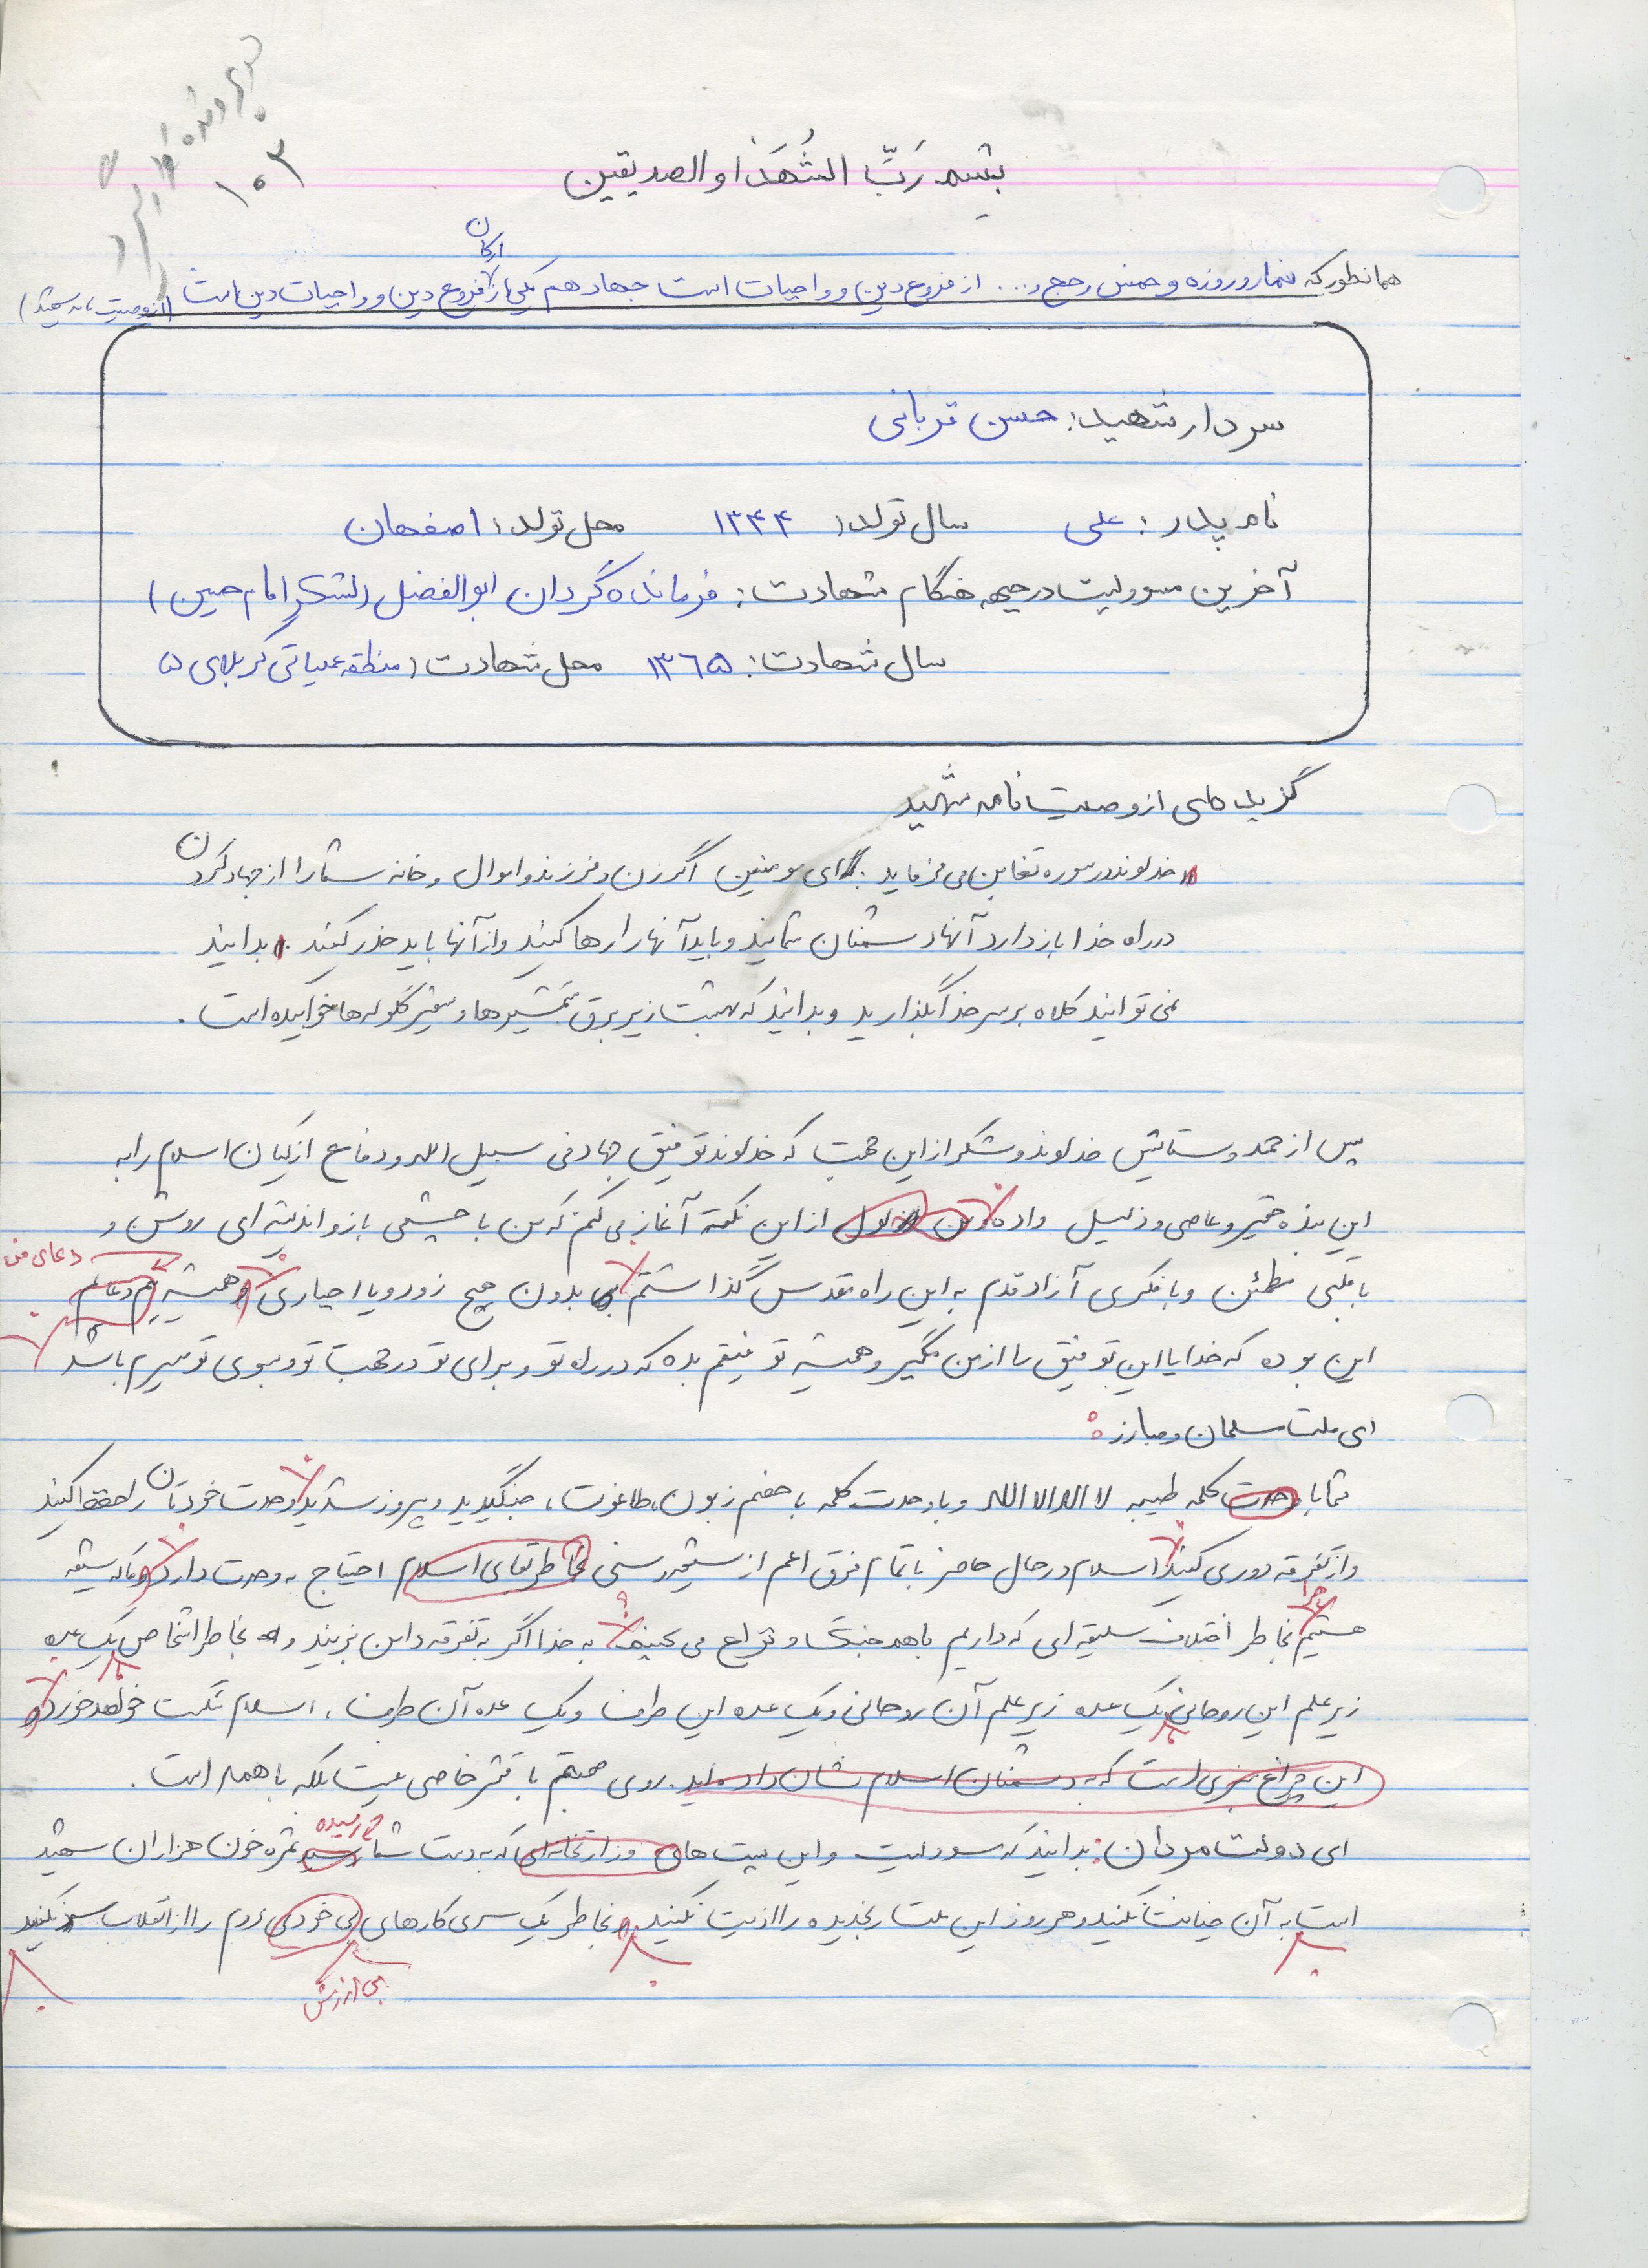 در پرونده
۱۰۳
بِسْمِ رَبِّ الشُّهَدا و الصدیقین
ارکان
همانطور که نماز و روزه و خمس و حج و .... از فروع دین و واجبات است جهاد هم یکی از فروع دین و واجبات دین است (از وصیت نامه شهید)
سردار شهید: حسن قربانی
نام پدر: علی سال تولد: ۱۳۴۴ محل تولد: اصفهان
آخرین مسوولیت در جبهه هنگام شهادت: فرمانده گردان ابوالفضل (لشکر امام حسین)
سال شهادت: ۱۳۶۵ محل شهادت: منطقه عملیاتی کربلای ۵
گزیده های از وصیت نامه شهید
خداوند در سوره تغابن می فرماید: ای مومنین اگر زن و فرزند و اموال و خانه شما را از جهاد کردن
در راه خدا باز دارد آنها دشمنان شمایند و باید آنها را رها کنید و از آنها باید حذر کنید. بدانید
نمی توانید کلاه بر سر خدا بگذارید و بدانید که بهشت زیر برق شمشیرها و صفیر گلوله ها خوابیده است.
پس از حمد و ستایش خداوند و شکر از این جهت که خداوند توفیق جهاد فی سبیل الله و دفاع از کیان اسلام را به
این بنده حقیر و عاصی و ذلیل داده از این نکته آغاز می کنم که من با چشمی باز و اندیشه ای روشن و
با قلبی مطمئن و با فکری آزاد قدم به این راه مقدس گذاشتم بدون هیچ زور و یا اجباری و همیشه دعایم
دعای من
این بوده که خدایا این توفیق را از من مگیر و همیشه توفیقم بده که در راه تو و برای تو در جهت تو و بسوی تو مسیرم باشد
ای ملت مسلمان و مبارز:
شما با وحدت کلمه طیبه لا اله الا الله و با وحدت کلمه با خصم زبون، طاغوت، جنگیدید و پیروز شدید وحدت خودتان را حفظ کنید
و از تفرقه دوری کنید اسلام در حال حاضر با تمام فرق اعم از شیعه و سنی بخاطر بقای اسلام احتیاج به وحدت دارد ما که شیعه
هستیم چرا بخاطر اختلاف سلیقه ای که داریم با هم جنگ و نزاع می کنیم؟ به خدا اگر به تفرقه دامن بزنید و بخاطر اشخاص یک عده
زیر علم این روحانی یک عده زیر علم آن روحانی و یک عده این طرف و یک عده آن طرف، اسلام شکست خواهد خورد و
این چراغ سبزی است که به دشمنان اسلام نشان داده اید. روی صحبتم با قشر خاصی نیست بلکه با همه است.
ای دولت مردان: بدانید که مسوولیت و این پست های وزارتخانه ای که بدست شما رسیده ثمره خون هزاران شهید
است به آن خیانت نکنید و هر روز این ملت رنجدیده را اذیت نکنید بخاطر یک سری کارهای بی خودی مردم را از انقلاب سرد نکنید
بی ارزش